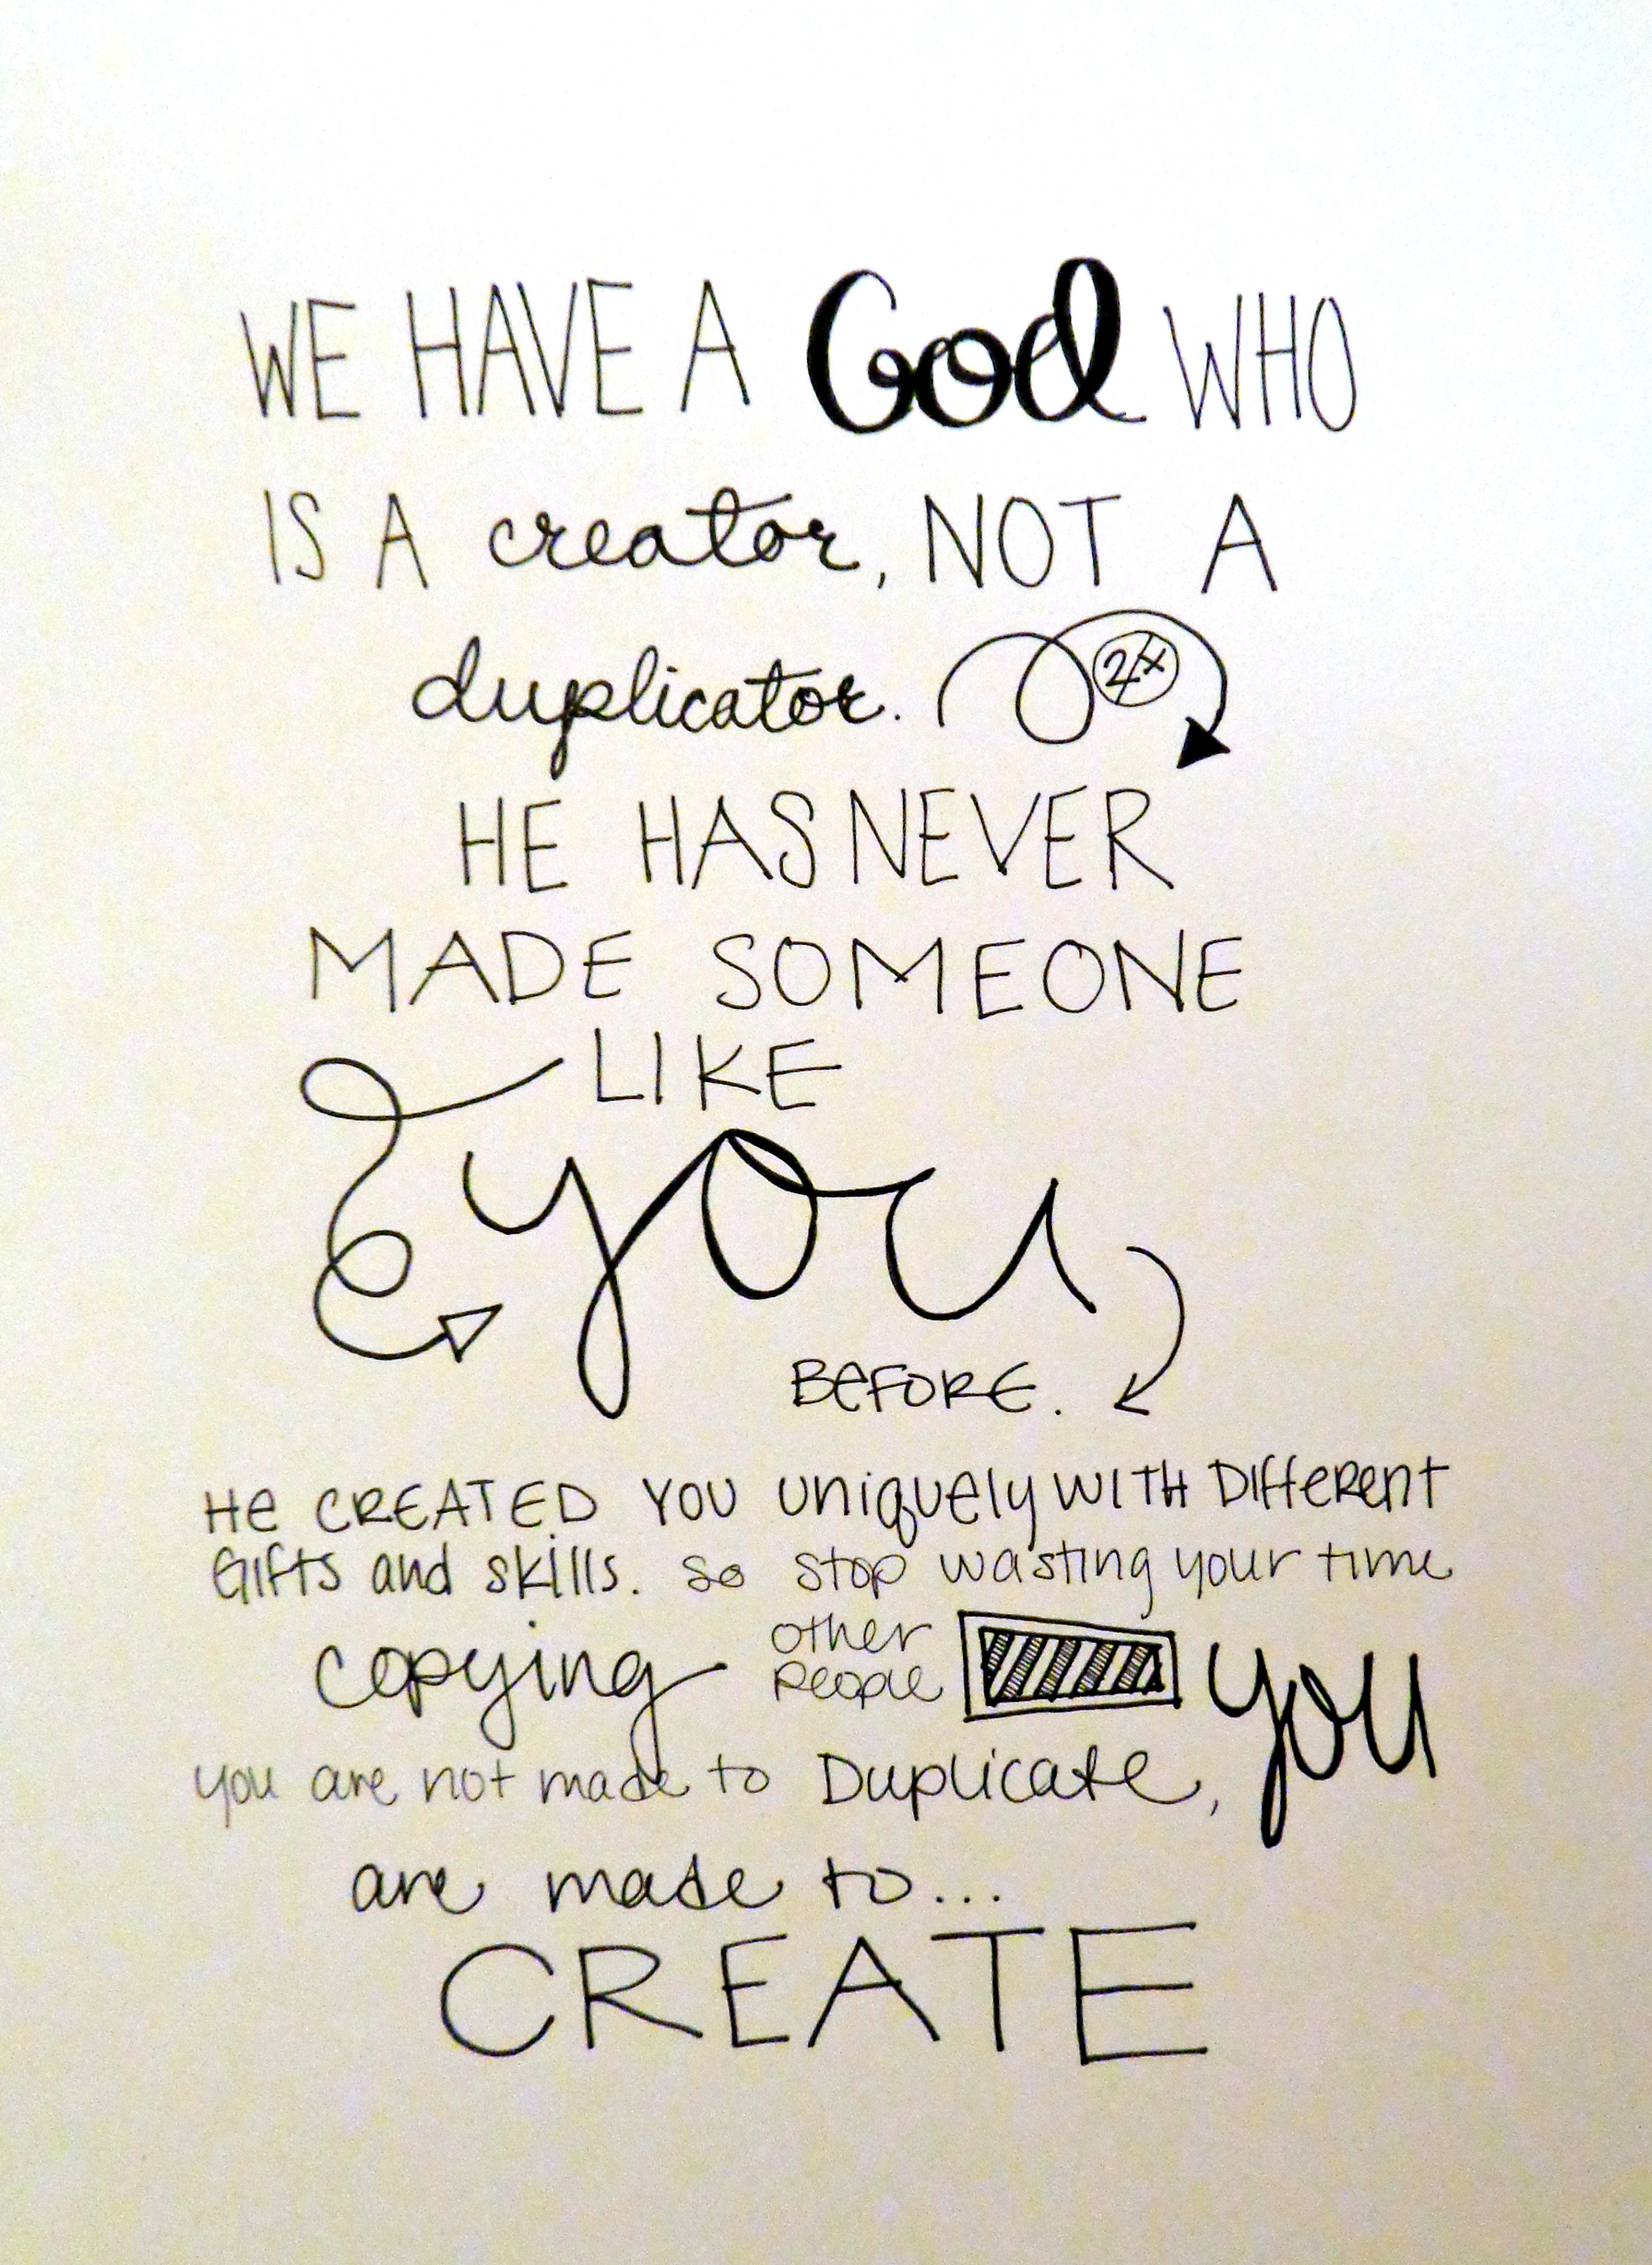 WE HAVE A God WHO
IS A creator, NOT A
duplicator. 2x
HE HAS NEVER
MADE SOMEONE
LIKE
you
BEFORE.
He CREATED YOU uniquely WITH DIffeRent
Gifts and skills. so stop wasting your time
copying other people you
you are not made to Duplicate,
are made to...
CREATE